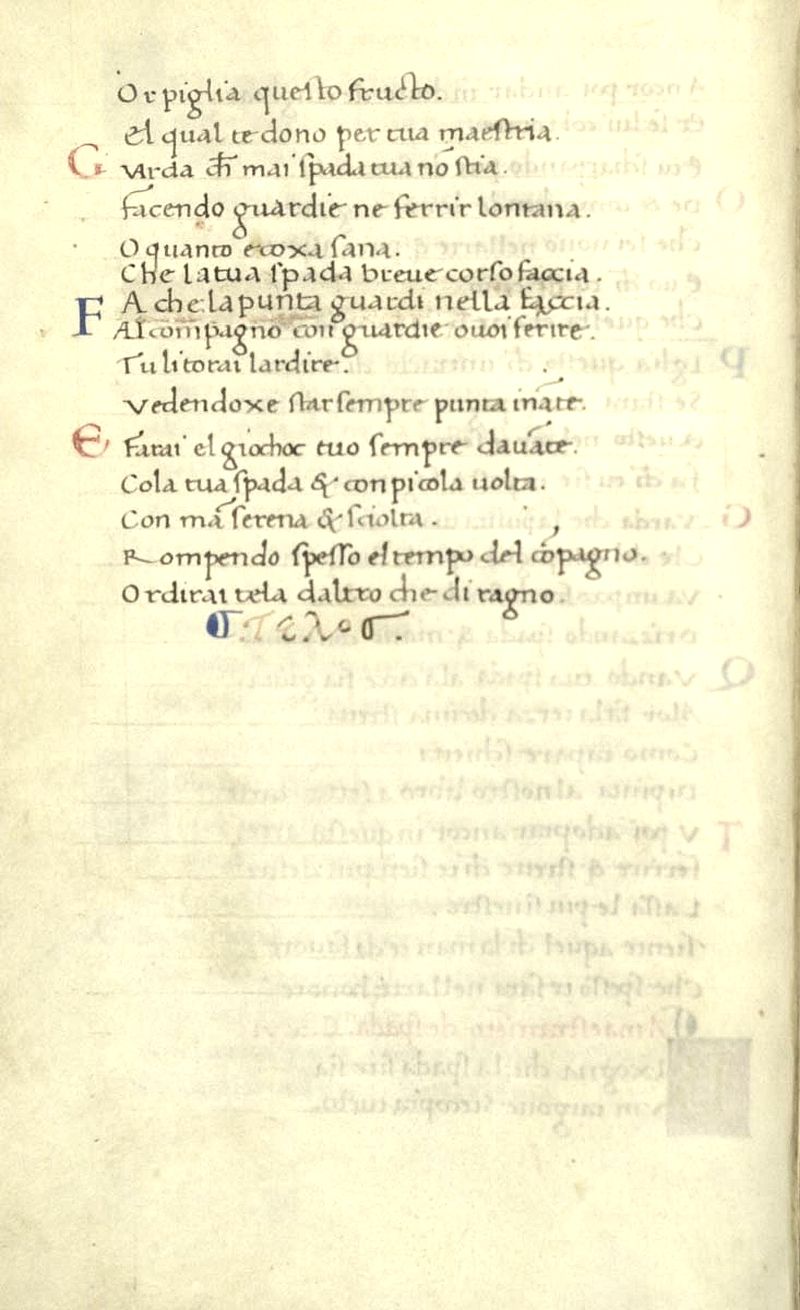 Or piglia questo fructo.
El qual te dono per tua maestria.
GVarda ch̄ mai spada tua nō stia.
facendo guardie ne ferrir lontana.
O quanto e coxa sana.
Che la tua spada breue corso faccia.
FA che la punta guardi nella faccia.
Al compagno con guardie o uoi ferire.
Tu li torai lardire.
Vedendoxe star sempre punta ināte.
E farai el giochor tuo sempre dauāte.
Cola tua spada & con picola uolta.
Con mā serena & sciolta.
Rompendo spesso el tempo del cōpagno.
Ordirai tela daltro che di ragno.